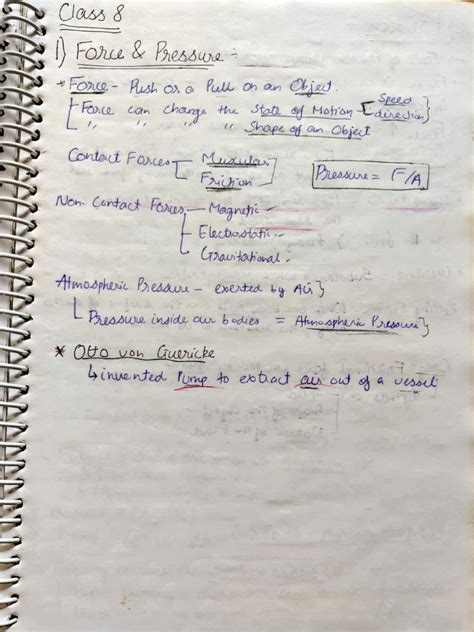 Class 8
1) Force & Pressure :-
* Force - Push or a Pull on an Object.
Force can change the State of Motion [ Speed direction }
" " " " Shape of an Object
Contact Forces - Muscular
- Friction
Pressure = F/A
Non-Contact Forces - Magnetic
- Electrostatic
- Gravitational
Atmospheric Pressure - exerted by Air }
Pressure inside our bodies = Atmospheric Pressure }
* Otto von Guericke
↳ invented Pump to extract air out of a vessel